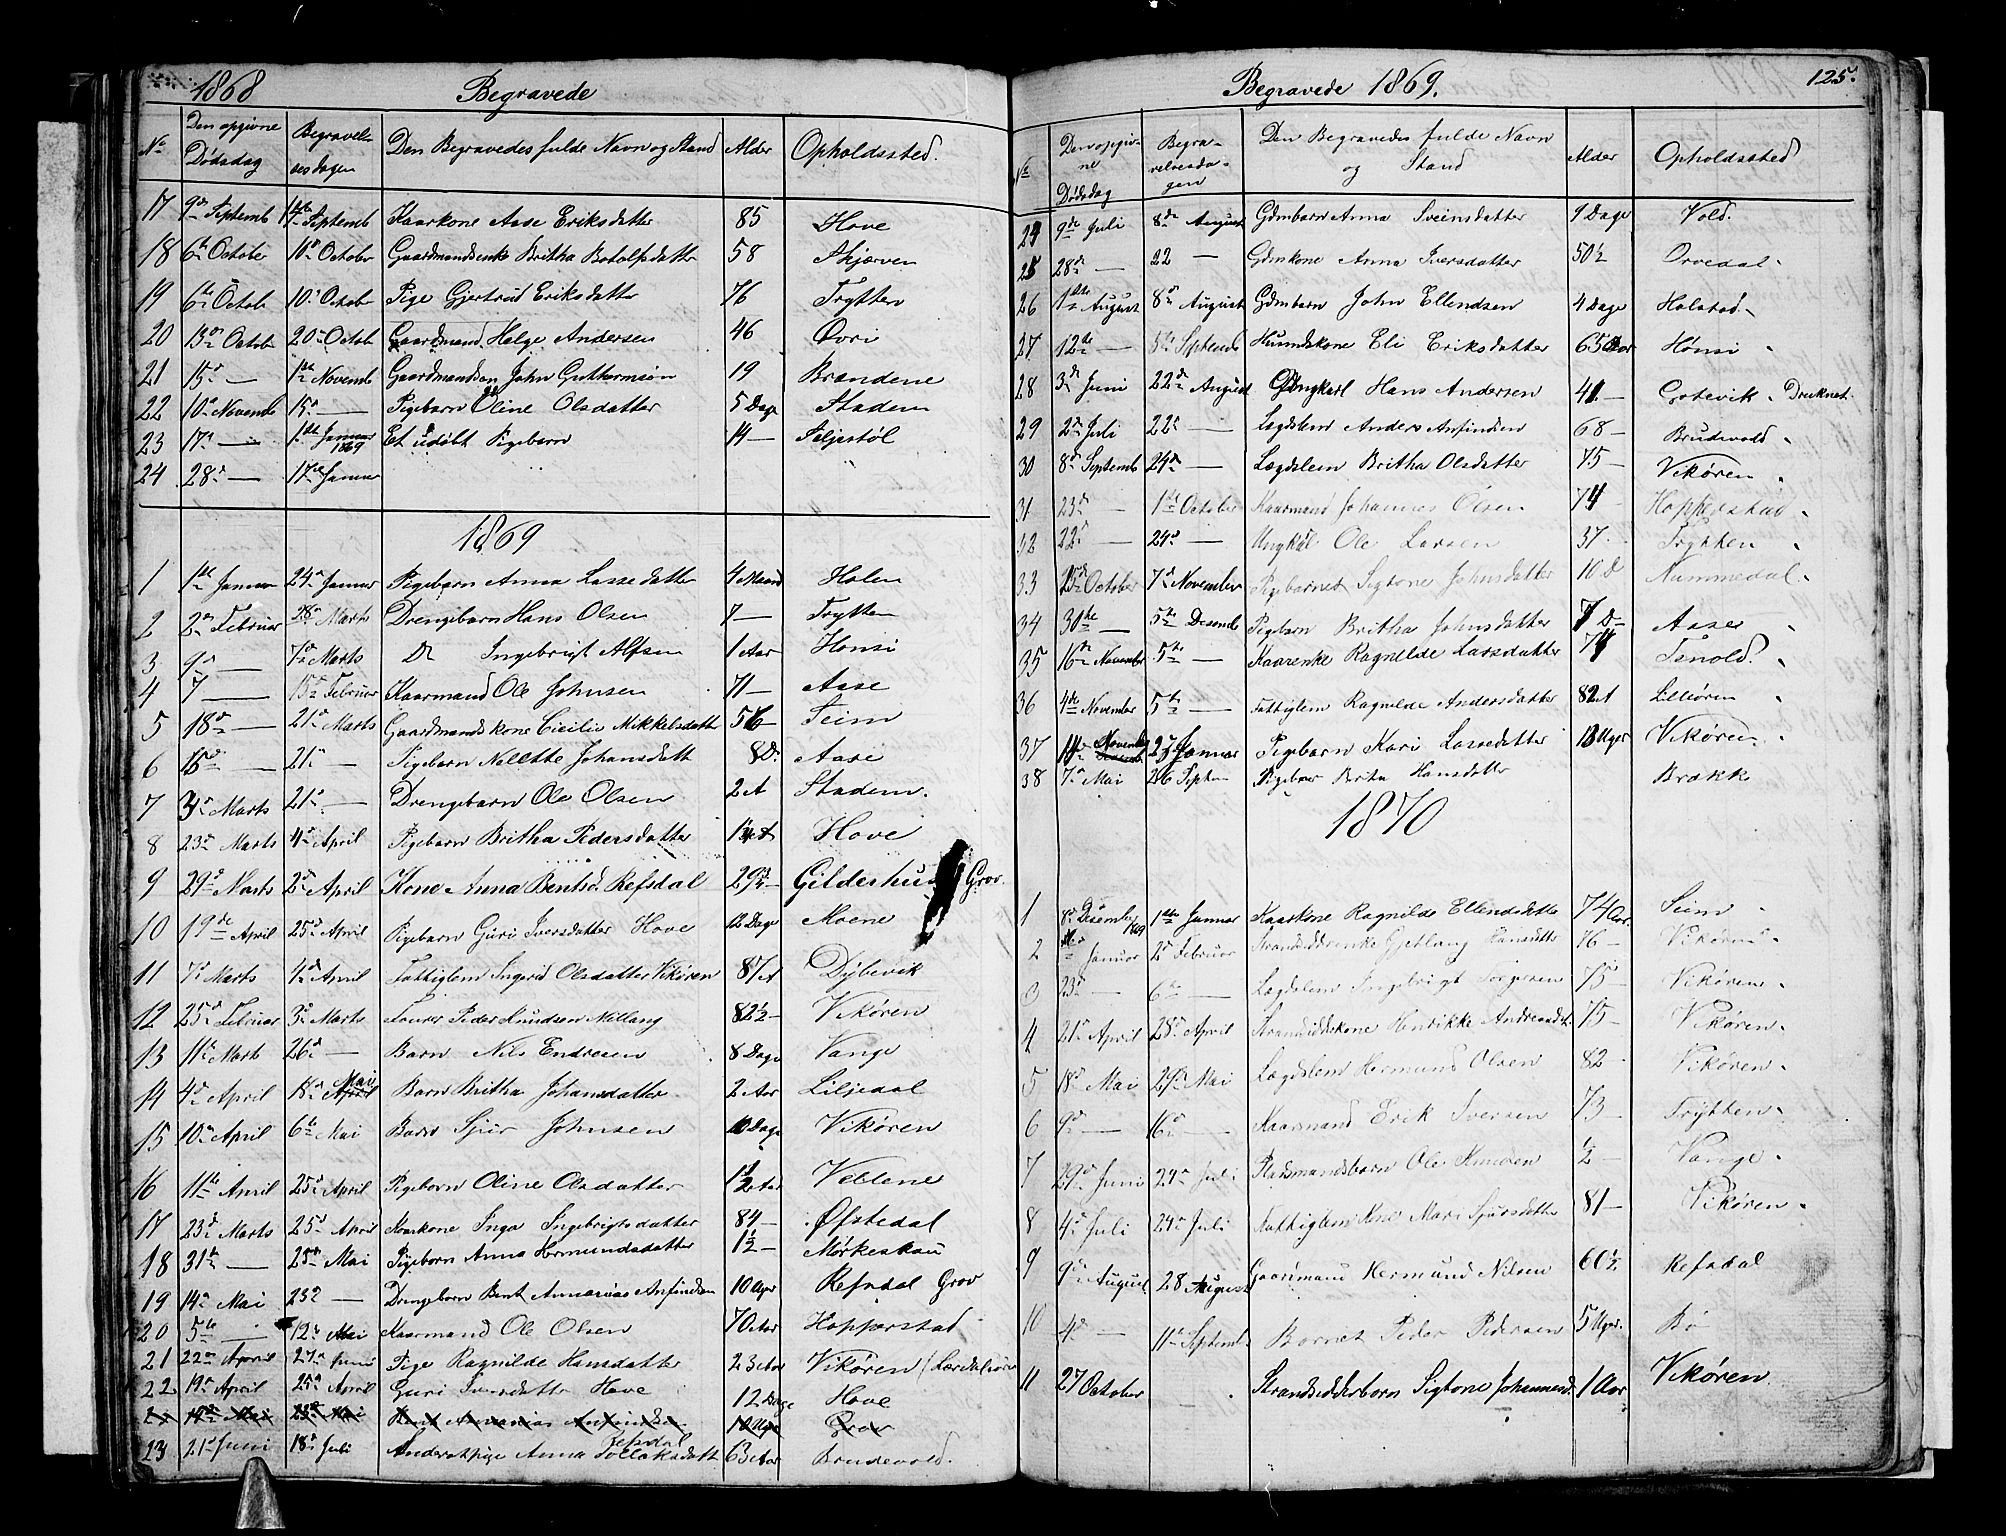 1868 Begravede
No Den opgivne Dødsdag Begravelsesdagen Den Begravedes fulde Navn og Stand Alder Opholdssted.
17 9de Septemb 14de Septemb Kaarkone Aase Eriksdatter 85 Hove
18 6te October 10de October Gaardmandsenke Britha Botolfsdatter 58 Skjærven
19 6te Octob 10de October Pige Gjertrud Eriksdatter 76 Trytten
20 13de Octob 20de Octob Gaardmand Helge Andersen 46 Øvri
21 15de — 1ste Novemb Gaardmandsøn John Guttormsøn 19 Brændene
22 10de Novemb 15de — Pigebarn Oline Olsdatter 5 Dage Stadem
23 17de — 1ste Januar 1869 Et udøbt Pigebarn 14 — Feljestøl
24 28de — 17de Januar
1869
1 1ste Januar 24de Januar Pigebarn Anna Lassedatter 4 Maand Holen
2 2den Februar 28de Marts Drengebarn Hans Olsen 7 — Trytten
3 9de — 7de Marts Do Ingebrigt Alfsen 1 Aar Hønsi
4 7 — 15de Februar Kaarmand Ole Johnsen 71 — Aase
5 18de — 21de Marts Gaardmandskone Cicilie Mikkelsdatter 56 — Seim
6 15de — 21de — Pigebarn Nillette Johansdatt 8 D. Aase
7 3de Marts 21de — Drengebarn Ole Olsen 2 A Stadem.
8 23de Marts 4de April Pigebarn Britha Pedersdatter Hove
9 29de Marts 2den April Kone Anna Bentsd. Refsdal 29 — Gilderhus Grov.
10 19de April 25de April Pigebarn Guri Iversdatter Hove 12 Dage Moene
11 7de Marts 4de April Fattiglem Ingrid Olsdatter Vikøren 87 A Dybevik
12 25de Februar 3de Marts Peder Knudsen 82½ — Vikøren
13 11te Marts 26de — Barn Nils Endresen 8 Dage Vange
14 4de April 18de Mai Barn Britha Johansdatter 2 Aar Liljedal
15 10de April 6te Mai Barn Sjur Johnsen 10 Dage Vikøren
16 11te April 25de April Pigebarn Oline Olsdatter 1½ Aar Vellene
17 23de Marts 25de April Kaarkone Inga Ingebrigtsdatter 84 — Øfstedal
18 31te — 25de Mai Pigebarn Anna Hermundsdatter 1½ — Mørkeskau
19 14de Mai 232 — Drengebarn Bent Annanias Anfindsen 10 Uger Refsdal Grov
20 5te 12te Mai Kaarmand Ole Olsen 70 Aar Hopperstad
21 22de April 27de Juni Pige Ragnilde Hansdatter 23 Aar Vikøren (Lærdalsøren
22 19de April 25de April Guri Iversdatter Hove 12 Dage Hove
23 19de Mai 23de Mai Bent Annanias Anfindsen 10 Uger Grov
23 21de Juni 18de Juli Pige Anna Tollaksdatt Refsdal 63 Aar Brudevold.
Begravede 1869. 125.
No Den opgivne Dødsdag Begravelsesdagen Den Begravedes fulde Navn og Stand Alder Opholdssted
24 9de Juli 8de August Gdmbarn Anna Sveinsdatter 9 Dage Vold.
25 28de — 22 — Gdmkone Anna Iversdatter 50½ Orvedal
26 1ste August 8de August Gdmbarn John Ellendsen 4 Dage Holstad
27 12te — 5te Septemb Huusmdskone Eli Eriksdatter 65 Aar Hønsi
28 3de Juni 22de August Ungkarl Hans Andersen 41 — Gotevik Druknet
29 2den Juli 22de — Lægdslem Anders Anfindsen 68 — Brudevold
30 8de Septemb 24de — Lægdslem Britha Olsdatter 75 — Vikøren
31 23de — 1ste October Kaarmand Johannes Olsen 74 Hopperstad
32 22de — 24de — Ungkal Ole Larsen 37 Trytten
33 25de October 7de November Pigebarnet Sigtone Johnsdatter 10 D Nummedal
34 30te — 5te Desemb Pigebarn Britha Johnsdatter 7 D — Aaser
35 16de November 5te — Kaarenke Ragnilde Lassdatter 74 Tenold.
36 4de November 5te — Fattiglem Ragnilde Andersdatter 82 A Lekøren
37 14de Novemb 23 Januar Pigebarn Kari Lassedatter 13 Uger Vikøren
38 7de Mai 26 Septen Pigebar Berta Hansdatter Brække
1870
1 8de Desember 1869 1ste Januar Kaarkone Ragnilde Ellendsdatter 74 Aar. Seim
2 Januar 2de Februar Strandsidderenke Gjetlaug Hansdatter 76 — Vikøren
3 23de — 6te — Lægdslem Ingebrigt Torgersen 75 — Vikøren
4 21de April 28de April Strandsidderkone Henrikke Andreasdt. 75 — Vikøren
5 18de Mai 29de Mai Lægdslem Hermund Olsen 82 — Vikøren
6 9de — 16de — Kaarmand Erik Iversen 73 — Trytten
7 29de Juni 24de Juli Pladsmandsbarn Ole Knudsen ½ — Vange
8 4de Juli 24de Juli Fattiglem Kone Mari Sjursdatter 81 — Vikøren
9 9de August 28 August Gaardmand Hermund Nilsen 60½ Refsdal
10 4de — 11te Septemb. Barnet Peder Pedersen 5 Uger. Bø
11 27 October Strandsidderbarn Sigtone Johannesd. 1 Aar Vikøren